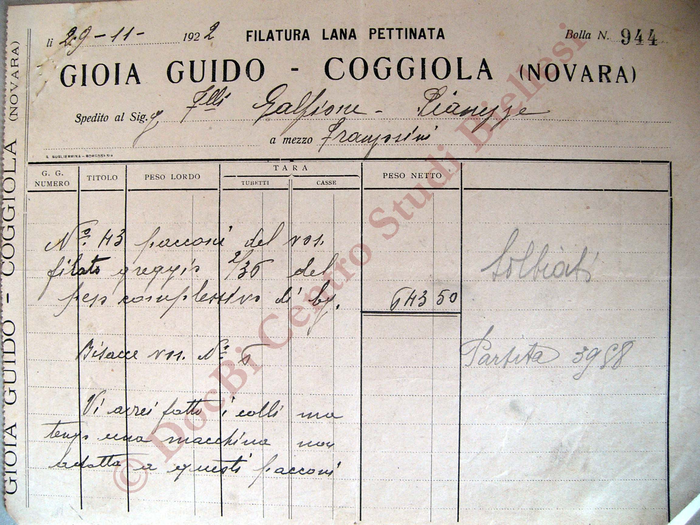 lì 29-11- 1922 FILATURA LANA PETTINATA Bolla N. 944
GIOIA GUIDO - COGGIOLA (NOVARA)
Spedito al Sig. Flli Galfione - Pianezze
a mezzo Franzosini
G. G. NUMERO TITOLO PESO LORDO TARA TUBETTI CASSE PESO NETTO
No. 43 pacconi del vos.
filato greggio 2/36 del
peso complessivo di kg. 643 50
Solbiati
Bisacce vos. No 5
Partita 3988
Vi avrei fatto i colli ma
tengo una macchina non
adatta a questi pacconi
GIOIA GUIDO - COGGIOLA (NOVARA)
© DocBi Centro Studi Biellesi